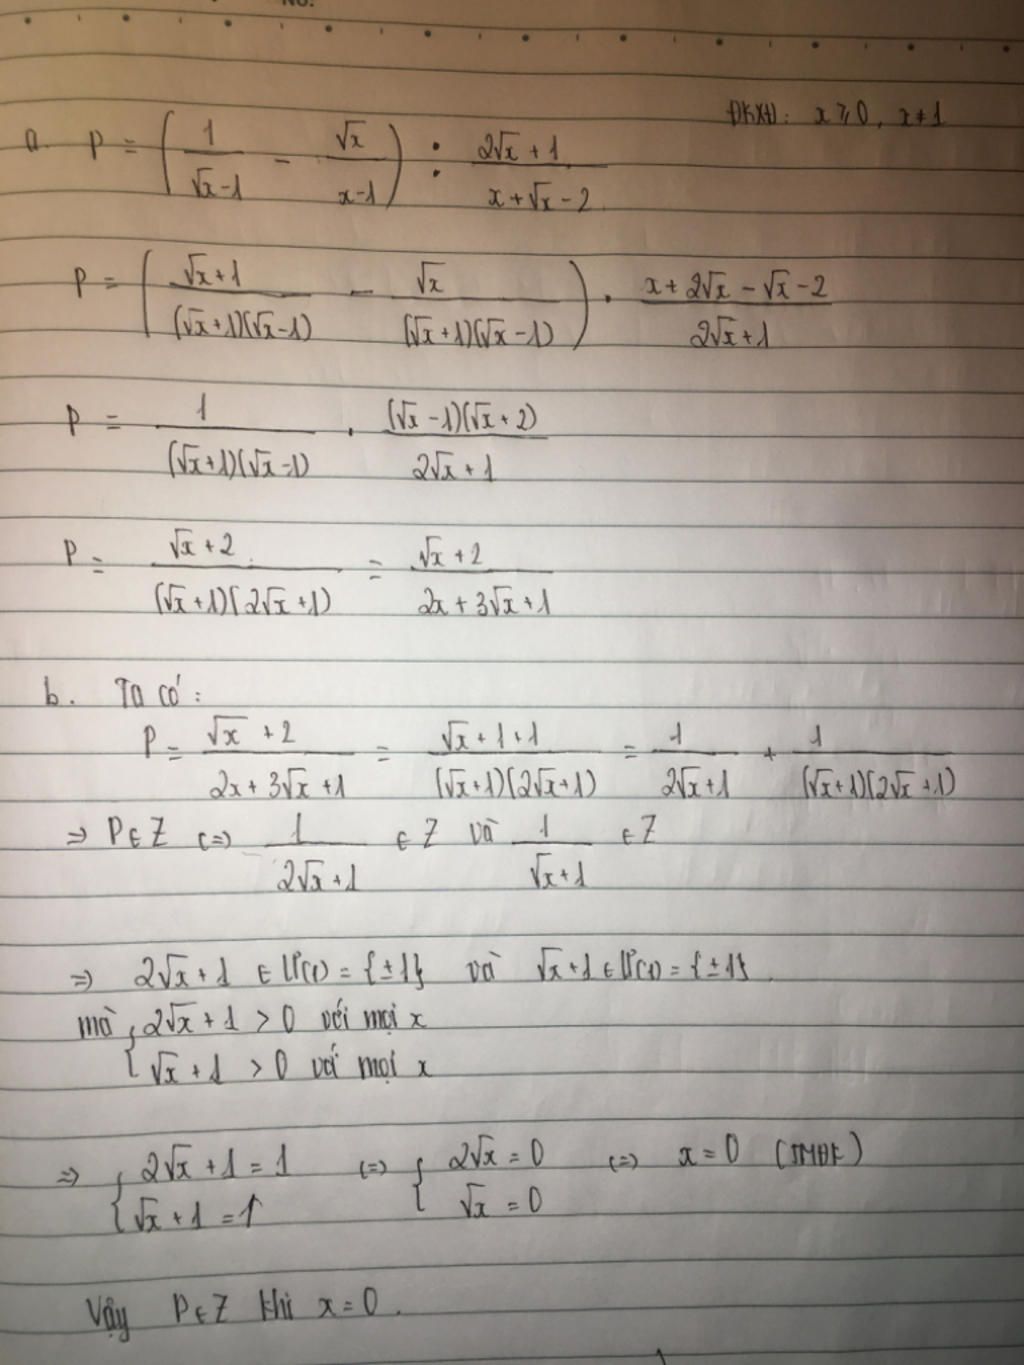 No.
a. P = (1/(√x-1) - √x/(x-1)) : (2√x+1)/(x+√x-2) ĐKXĐ: x ≥ 0, x ≠ 1
P = ((√x+1)/((√x+1)(√x-1)) - √x/((√x+1)(√x-1))) . (x+2√x-√x-2)/(2√x+1)
P = 1/((√x+1)(√x-1)) . ((√x-1)(√x+2))/(2√x+1)
P = (√x+2)/((√x+1)(2√x+1)) = (√x+2)/(2x+3√x+1)
b. Ta có:
P = (√x+2)/(2x+3√x+1) = (√x+1+1)/((√x+1)(2√x+1)) = 1/(2√x+1) + 1/((√x+1)(2√x+1))
⇒ P∈Z ⇔ 1/(2√x+1) ∈ Z và 1/(√x+1) ∈ Z
⇒ 2√x+1 ∈ Ư(1) = {±1} và √x+1 ∈ Ư(1) = {±1}.
mà { 2√x+1 > 0 với mọi x
√x+1 > 0 với mọi x
⇒ { 2√x+1 = 1 ⇔ { 2√x = 0 ⇔ x = 0 (TMĐK)
√x+1 = 1 √x = 0
Vậy P∈Z khi x = 0.